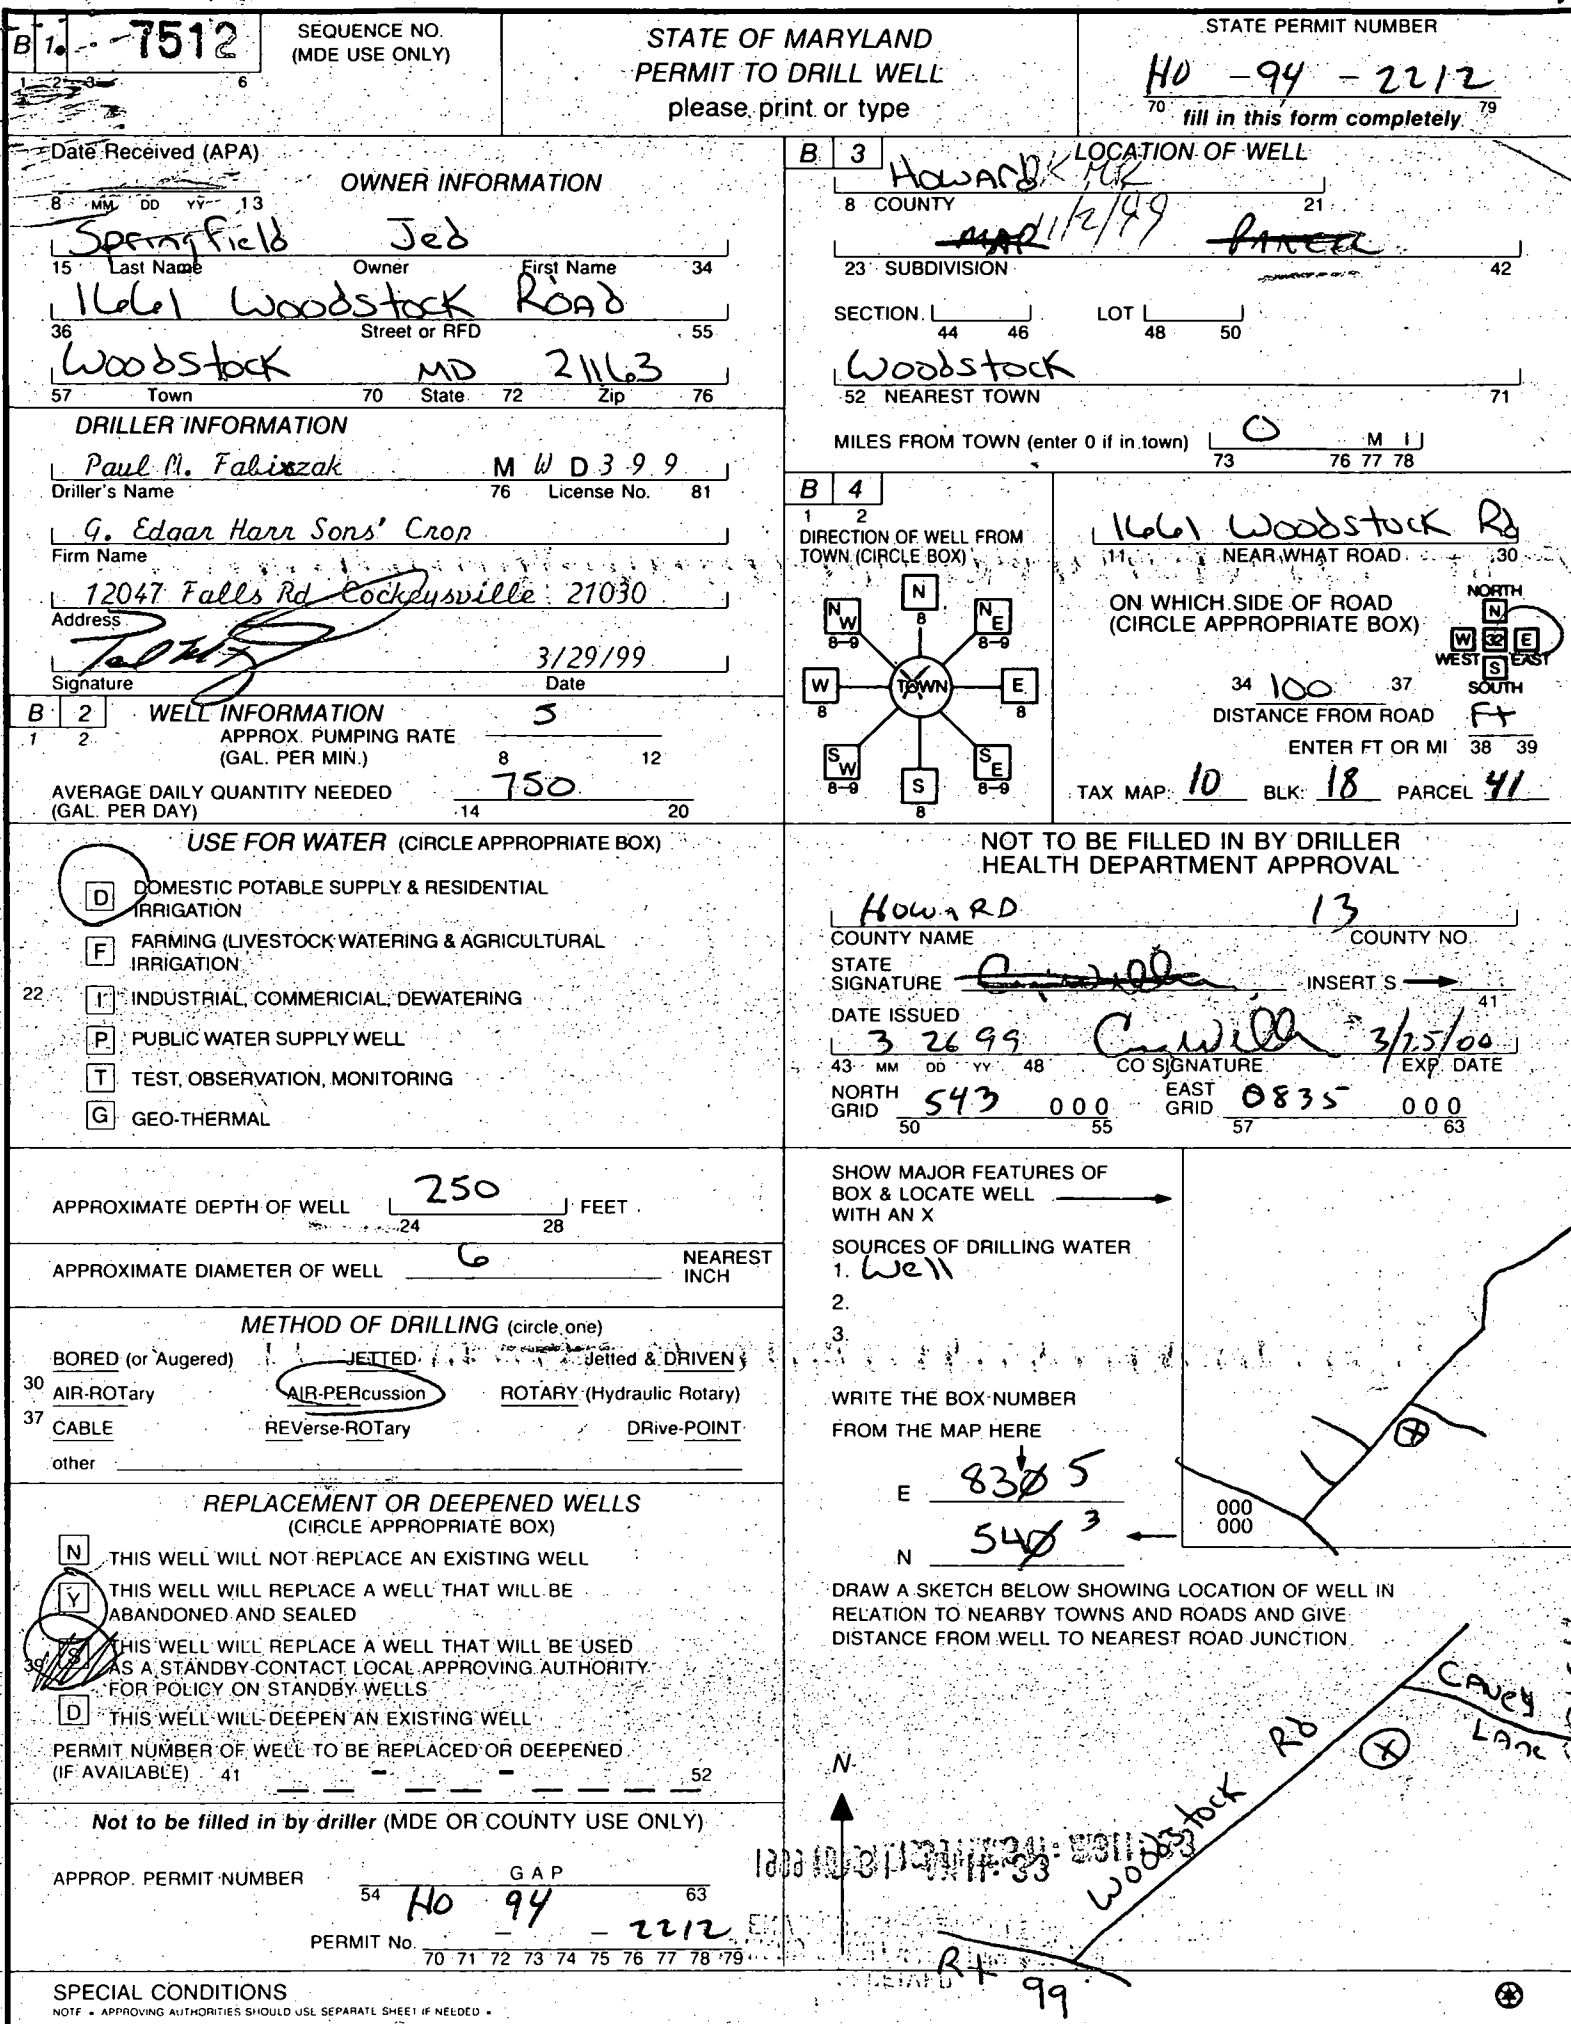 B 1. 7512
SEQUENCE NO.
(MDE USE ONLY)
1 2 3 6
STATE OF MARYLAND
PERMIT TO DRILL WELL
please print or type
STATE PERMIT NUMBER
HO - 94 - 2212
70 fill in this form completely 79
Date Received (APA)
8 MM DD YY 13
OWNER INFORMATION
Springfield Jed
15 Last Name Owner First Name 34
1661 Woodstock Road
36 Street or RFD 55
Woodstock MD 21163
57 Town 70 State 72 Zip 76
DRILLER INFORMATION
Paul M. Fabiszak M W D 3 9 9
Driller's Name 76 License No. 81
G. Edgar Harr Sons' Crop
Firm Name
12047 Falls Rd Cockeysville 21030
Address
3/29/99
Signature Date
B 2 WELL INFORMATION
1 2
APPROX. PUMPING RATE 5
(GAL. PER MIN.) 8 12
AVERAGE DAILY QUANTITY NEEDED 750
(GAL. PER DAY) 14 20
USE FOR WATER (CIRCLE APPROPRIATE BOX)
D DOMESTIC POTABLE SUPPLY & RESIDENTIAL
IRRIGATION
F FARMING (LIVESTOCK WATERING & AGRICULTURAL
IRRIGATION
22 I INDUSTRIAL, COMMERICIAL, DEWATERING
P PUBLIC WATER SUPPLY WELL
T TEST, OBSERVATION, MONITORING
G GEO-THERMAL
APPROXIMATE DEPTH OF WELL 250 FEET
24 28
APPROXIMATE DIAMETER OF WELL 6 NEAREST
INCH
METHOD OF DRILLING (circle one)
BORED (or Augered) JETTED Jetted & DRIVEN
30 AIR-ROTary AIR-PERcussion ROTARY (Hydraulic Rotary)
37 CABLE REVerse-ROTary DRive-POINT
other
REPLACEMENT OR DEEPENED WELLS
(CIRCLE APPROPRIATE BOX)
N THIS WELL WILL NOT REPLACE AN EXISTING WELL
Y THIS WELL WILL REPLACE A WELL THAT WILL BE
ABANDONED AND SEALED
39 S THIS WELL WILL REPLACE A WELL THAT WILL BE USED
AS A STANDBY-CONTACT LOCAL APPROVING AUTHORITY
FOR POLICY ON STANDBY WELLS
D THIS WELL WILL DEEPEN AN EXISTING WELL
PERMIT NUMBER OF WELL TO BE REPLACED OR DEEPENED
(IF AVAILABLE) 41 - - 52
Not to be filled in by driller (MDE OR COUNTY USE ONLY)
APPROP. PERMIT NUMBER G A P
54 63
HO 94 - 2212
PERMIT No.
70 71 72 73 74 75 76 77 78 79
SPECIAL CONDITIONS
NOTE - APPROVING AUTHORITIES SHOULD USE SEPARATE SHEET IF NEEDED -
B 3 LOCATION OF WELL
Howard
8 COUNTY 21
MAP 11/2/99 PARCEL
23 SUBDIVISION 42
SECTION LOT
44 46 48 50
Woodstock
52 NEAREST TOWN 71
MILES FROM TOWN (enter 0 if in town) 0 M I
73 76 77 78
B 4
1 2
DIRECTION OF WELL FROM
TOWN (CIRCLE BOX)
N
8
NW
8-9
NE
8-9
W
8
TOWN
E
8
SW
8-9
SE
8-9
S
8
1661 Woodstock Rd
11 NEAR WHAT ROAD 30
ON WHICH SIDE OF ROAD
(CIRCLE APPROPRIATE BOX)
NORTH
N
W 32 E
WEST S EAST
SOUTH
34 100 37
DISTANCE FROM ROAD Ft
ENTER FT OR MI 38 39
TAX MAP: 10 BLK: 18 PARCEL 41
NOT TO BE FILLED IN BY DRILLER
HEALTH DEPARTMENT APPROVAL
Howard 13
COUNTY NAME COUNTY NO.
STATE
SIGNATURE INSERT S
41
DATE ISSUED
3 26 99 3/25/00
43 MM DD YY 48 CO SIGNATURE EXP. DATE
NORTH
GRID 543 000
50 55
EAST
GRID 0835 000
57 63
SHOW MAJOR FEATURES OF
BOX & LOCATE WELL
WITH AN X
SOURCES OF DRILLING WATER
1. Well
2.
3.
WRITE THE BOX NUMBER
FROM THE MAP HERE
E 830 5
N 540 3
000
000
DRAW A SKETCH BELOW SHOWING LOCATION OF WELL IN
RELATION TO NEARBY TOWNS AND ROADS AND GIVE
DISTANCE FROM WELL TO NEAREST ROAD JUNCTION
N
Woodstock Rd
Cavey
Lane
X
Rt 99